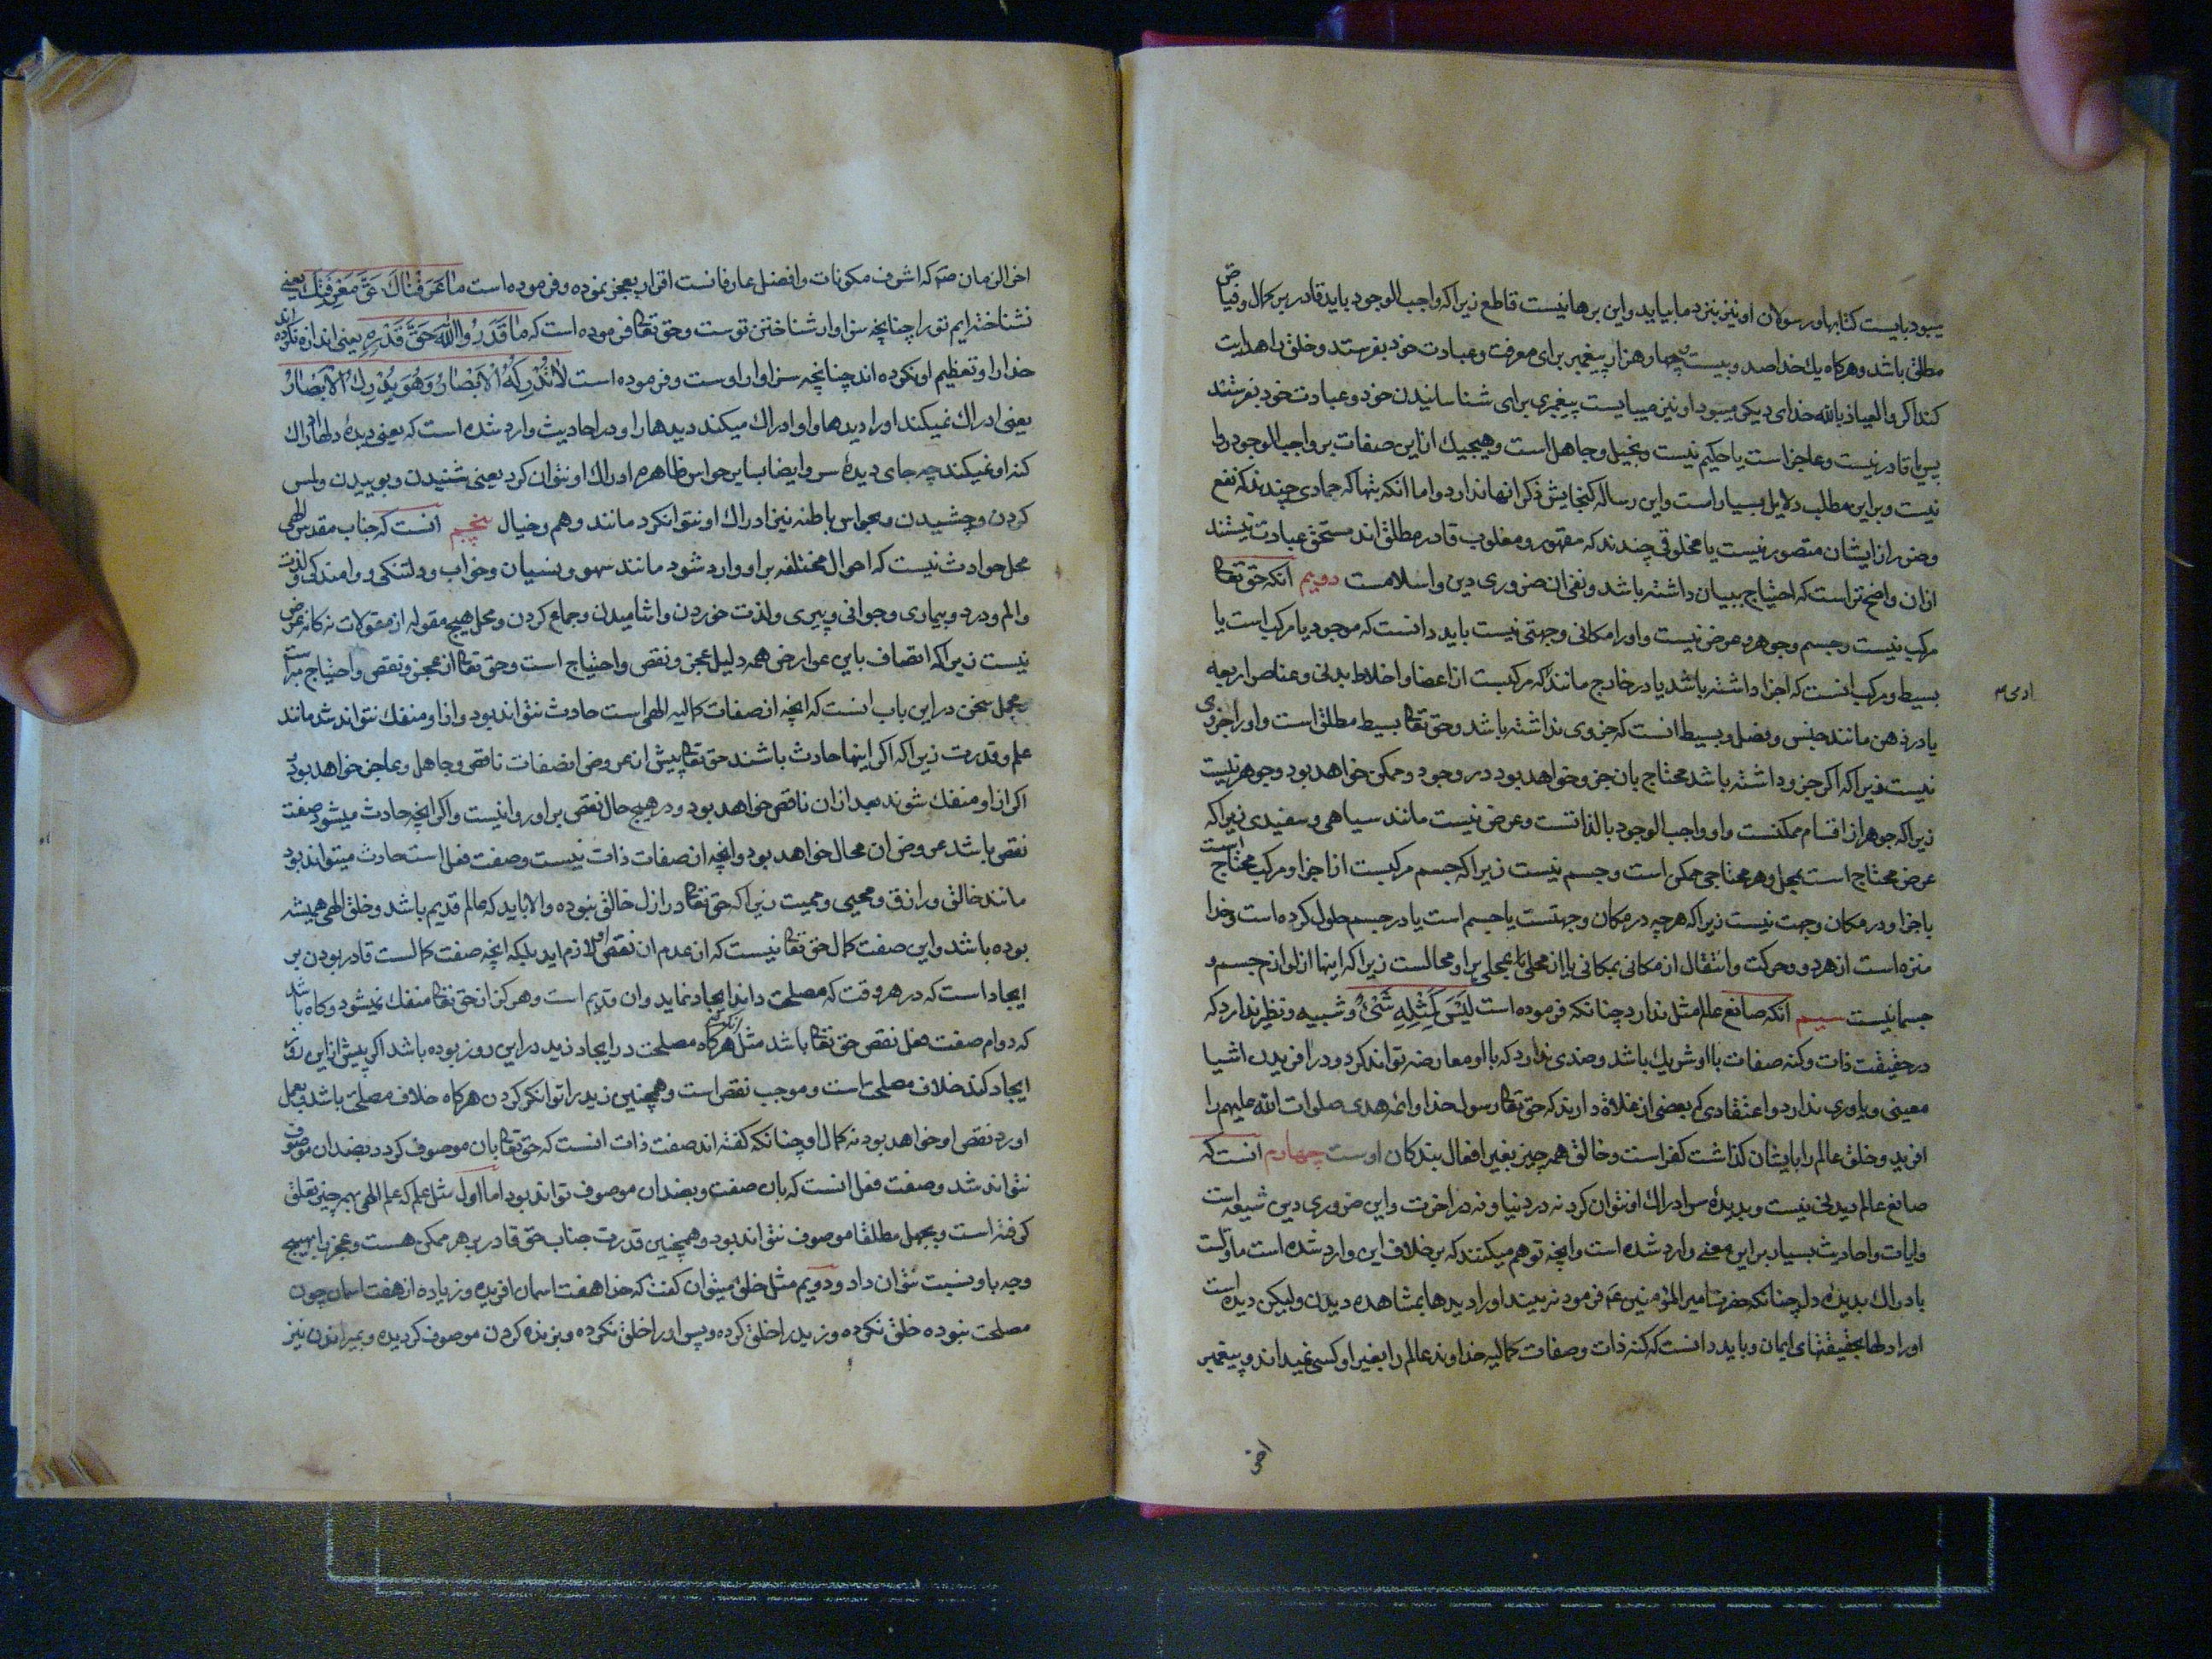 میبود بایست کتابها و رسولان او نیز بنزد ما بیایند و این برهانیست قاطع زیرا که واجب الوجود باید قادر بر کمال و فیاض
مطلق باشد و هرگاه یك خدا صد و بیست و چهار هزار پیغمبر برای معرفت و عبادت خود بفرستد و خلق را هدایت
کند اگر و العیاذ بالله خدای دیگر میبود او نیز میبایست پیغمبری برای شناسانیدن خود و عبادت خود بفرستد
پس یا قادر نیست و عاجز است یا حکیم نیست و بخیل و جاهل است و هیچیك از این صفات بر واجب الوجود روا
نیست و بر این مطلب دلایل بسیار است و این رساله گنجایش ذکر انها ندارد و اما انکه بتها که جمادی چندند که نفع
و ضرر از ایشان متصور نیست یا مخلوقی چندند که مقهور و مغلوب قادر مطلق اند مستحق عبادت نیستند
از ان واضح تر است که احتیاج ببیان داشته باشد و نفی ان ضروری دین و اسلامست دویم انکه حق تعالی
مرکب نیست و جسم و جوهر و عرض نیست و او را مکانی و جهتی نیست باید دانست که موجود یا مرکب است یا
بسیط و مرکب انست که اجزا داشته باشد یا در خارج مانند که مرکبست از اعضا و اخلاط بدنی و عناصر اربعه
ادمی م
یا در ذهن مانند جنس و فصل و بسیط انست که جزوی نداشته باشد و حق تعالی بسیط مطلق است و او را جزوی
نیست زیرا که اگر جزو داشته باشد محتاج بان جزو خواهد بود در وجود و ممکن خواهد بود و جوهر نیست
زیرا که جوهر از اقسام ممکنست و او واجب الوجود بالذاتست و عرض نیست مانند سیاهی و سفیدی زیرا که
عرض محتاج است بمحل و هر محتاجی ممکن است و جسم نیست زیرا که جسم مرکبست از اجزا و مرکب محتاج است
باجزا و در مکان و جهت نیست زیرا که هر چه در مکان و جهتست یا جسم است یا در جسم حلول کرده است و خدا
منزه است از هر دو و حرکت و انتقال از مکانی بمکانی یا از محلی بمحلی بر او محالست زیرا که اینها از لوازم جسم و
جسمانیست سیم انکه صانع عالم مثل ندارد چنانکه فرموده است لَیْسَ کَمِثْلِهِ شَیْءٌ و شبیه و نظیر ندارد که
در حقیقت ذات و کنه صفات با او شریك باشد و ضدی ندارد که با او معارضه تواند کرد و در افریدن اشیا
معینی و یاوری ندارد و اعتقادی که بعضی از غلاة دارند که حق تعالی رسول خدا و ائمه هدی صلوات الله علیهم را
افرید و خلق عالم را بایشان گذاشت کفر است و خالق همه چیز بغیر افعال بندکان اوست چهارم انست که
صانع عالم دیدنی نیست و بدیدهٔ سر ادراك او نتوان کرد نه در دنیا و نه در اخرت و این ضروری دین شیعه است
و ایات و احادیث بسیار بر این معنی وارد شده است و انچه توهم میکنند که بر خلاف این وارد شده است ماؤلست
بادراك بدیدهٔ دل چنانکه حضرت امیر المؤمنین ع فرمود نه بیند او را دیدها بمشاهده دیدن و لیکن دیده است
او را دلها بحقیقتهای ایمان و باید دانست که کنه ذات و صفات کمالیه خداوند عالم را بغیر او کسی نمیداند و پیغمبر
اخر
اخر الزمان ص که اشرف مکونات و افضل عارفانست اقرار بعجز نموده و فرموده است ما عَرَفْناكَ حَقَّ مَعْرِفَتِكَ یعنی
نشناخته ایم تو را چنانچه سزاوار شناختن توست و حق تعالی فرموده است که ما قَدَرُوا اللّٰهَ حَقَّ قَدْرِهِ یعنی اندازه نکرده اند
خدا را و تعظیم او نکرده اند چنانچه سزاوار اوست و فرموده است لا تُدْرِکُهُ الْاَبْصارُ وَهُوَ یُدْرِكُ الْاَبْصارَ
یعنی ادراك نمیکند او را دیدها و او ادراك میکند دیدها را و در احادیث وارد شده است که یعنی دیدهٔ دلها ادراك
کنه او نمیکند چه جای دیدهٔ سر و ایضا بسایر حواس ظاهره ادراك او نتوان کرد یعنی شنیدن و بوییدن و لمس
کردن و چشیدن و بحواس باطنه نیز ادراك او نتوانکرد مانند وهم و خیال پنجم انست که جناب مقدس الهی
محل حوادث نیست که احوال مختلفه بر او وارد شود مانند سهو و نسیان و خواب و دلتنکی و واماندگی و لذت
و الم و درد و بیماری و جوانی و پیری و لذت خوردن و اشامیدن و جماع کردن و محل هیچ مقوله از مقولات نه کانه عرض
نیست زیرا که اتصاف باین عوارض همه دلیل عجز و نقص و احتیاج است و حق تعالی از عجز و نقص و احتیاج مبرا است
و مجمل سخن در این باب انست که انچه از صفات کمالیه الهی است حادث نتواند بود و از او منفك نتواند شد مانند
علم و قدرت زیرا که اگر اینها حادث باشند حق تعالی پیش از عروض ان صفات ناقص و جاهل و عاجز خواهد بود و
اگر از او منفك شوند بعد از ان ناقص خواهد بود و در هیچ حال نقص بر او روا نیست و اگر انچه حادث میشود صفت
نقص باشد عروض ان محال خواهد بود و انچه از صفات ذات نیست و صفت فعل است حادث میتواند بود
مانند خالق و رازق و محیی و ممیت زیرا که حق تعالی در ازل خالق نبوده و الا باید که عالم قدیم باشد و خلق الهی همیشه
بوده باشد و این صفت کمال حق تعالی نیست که از عدم ان نقص او لازم اید بلکه انچه صفت کمالست قادر بودن بر
ایجاد است که در هر وقت که مصلحت داند ایجاد نماید و ان قدیم است و هرگز از حق تعالی منفك نمیشود و گاه باشد
که دوام صفت فعل نقص حق تعالی باشد مثل انکه هرگاه مصلحت در ایجاد زید در این روز بوده باشد اگر پیش از این روز
ایجاد کند خلاف مصلحت است و موجب نقص است و همچنین زید را توانگر کردن هرگاه خلاف مصلحت باشد بعمل
اورد نقص او خواهد بود نه کمال او چنانکه گفته اند صفت ذات انست که حق تعالی بان موصوف گردد و بضد ان موصوف
نتواند شد و صفت فعل انست که بان صفت و بضد ان موصوف تواند بود اما اول مثل علم که علم الهی بهمه چیز تعلق
گرفته است و بجهل مطلقا موصوف نتواند بود و همچنین قدرت جناب حق قادر بر هر ممکن هست و عجز را بهیچ
وجه باو نسبت نتوان داد و دویم مثل خلق میتوان گفت که خدا هفت اسمان افریده و زیاده از هفت اسمان چون
مصلحت نبوده خلق نکرده و زید را خلق کرده و پسر او را خلق نکرده و بزنده کردن موصوف گردیده و بمیرانیدن نیز